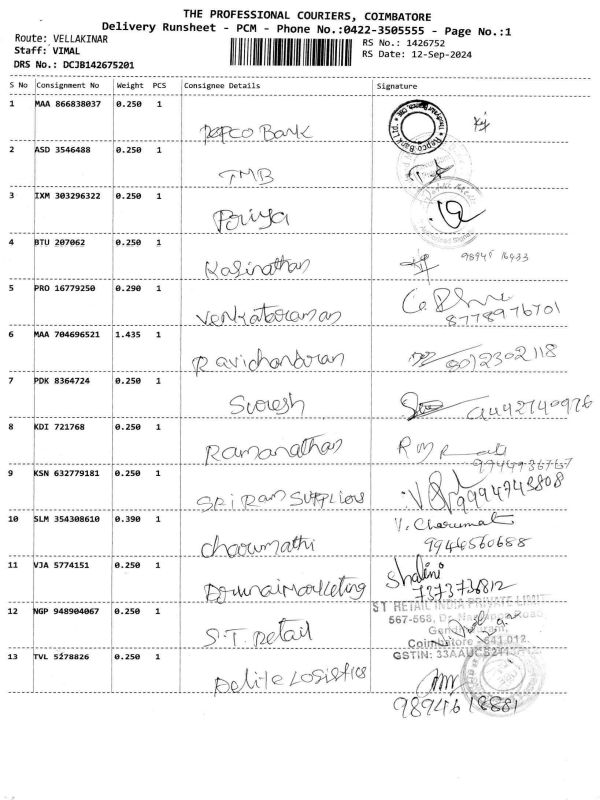 THE PROFESSIONAL COURIERS, COIMBATORE
Delivery Runsheet - PCM - Phone No.:0422-3505555 - Page No.:1
Route: VELLAKINAR
RS No.: 1426752
Staff: VIMAL
RS Date: 12-Sep-2024
DRS No.: DCJB142675201
S No Consignment No Weight PCS Consignee Details Signature
1 MAA 866838037 0.250 1
Repco Bank
2 ASD 3546488 0.250 1
TMB
3 IXM 303296322 0.250 1
Poriya
4 BTU 207062 0.250 1
Kasinathan
5 PRO 16779250 0.290 1
Venkatoraman 8778976701
6 MAA 704696521 1.435 1
Ravichandoran
7 PDK 8364724 0.250 1
Suresh
8 KDI 721768 0.250 1
Ramanathan
9 KSN 632779181 0.250 1
Sri Ram Suppliers
10 SLM 354308610 0.390 1 V. Charumati
Charumathi 9944560688
11 VJA 5774151 0.250 1 Shalini
Marketing 7373736812
12 NGP 948904067 0.250 1 ST RETAIL INDIA PRIVATE LIMIT
567-568, Road,
S.T. Retail
Coimbatore - 641 012.
GSTIN:
13 TVL 5278826 0.250 1
Delite Logistics
9894618881